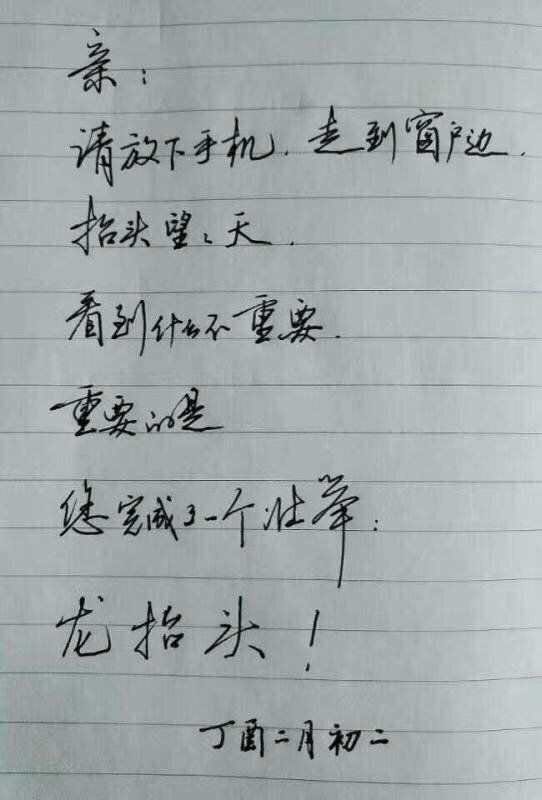 亲：
请放下手机，走到窗户边，
抬头望望天，
看到什么不重要，
重要的是
您完成了一个壮举：
龙抬头！
丁酉二月初二